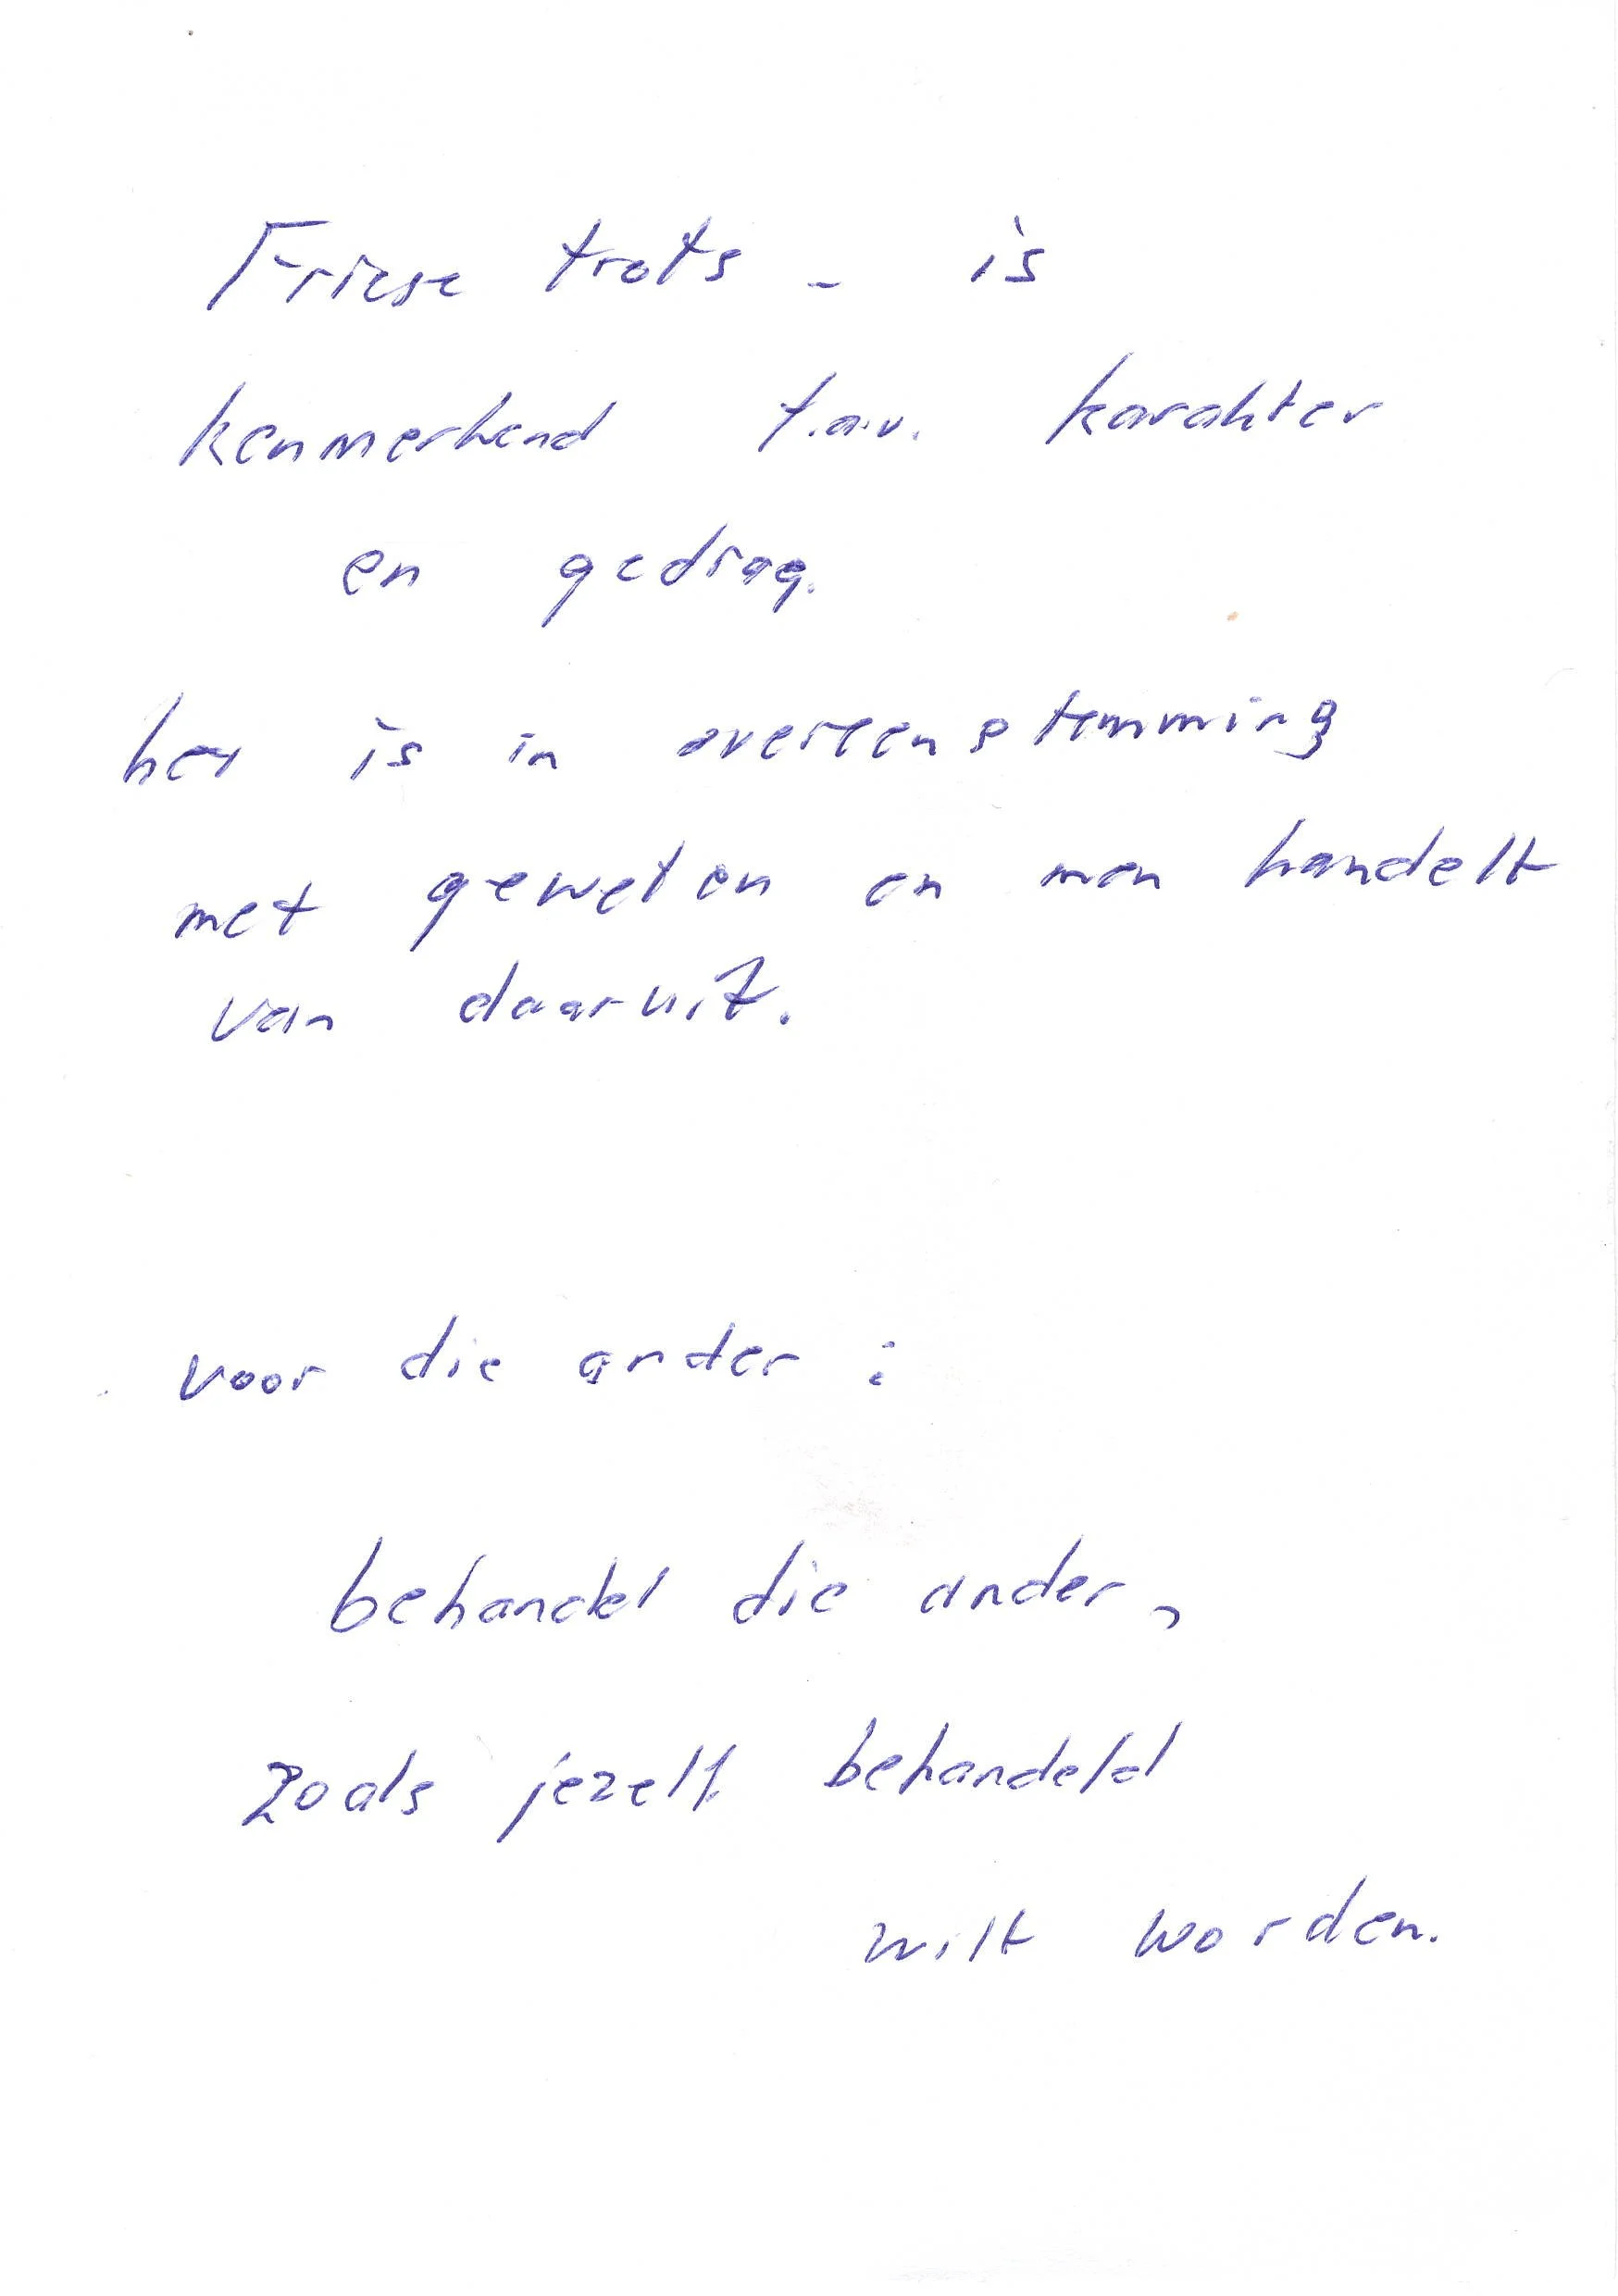 Friese trots - is
kenmerkend t.a.v. karakter
en gedrag.
het is in overeenstemming
met geweten en men handelt
van daaruit.
voor die ander:
behandel die ander,
zoals jezelf behandeld
wilt worden.